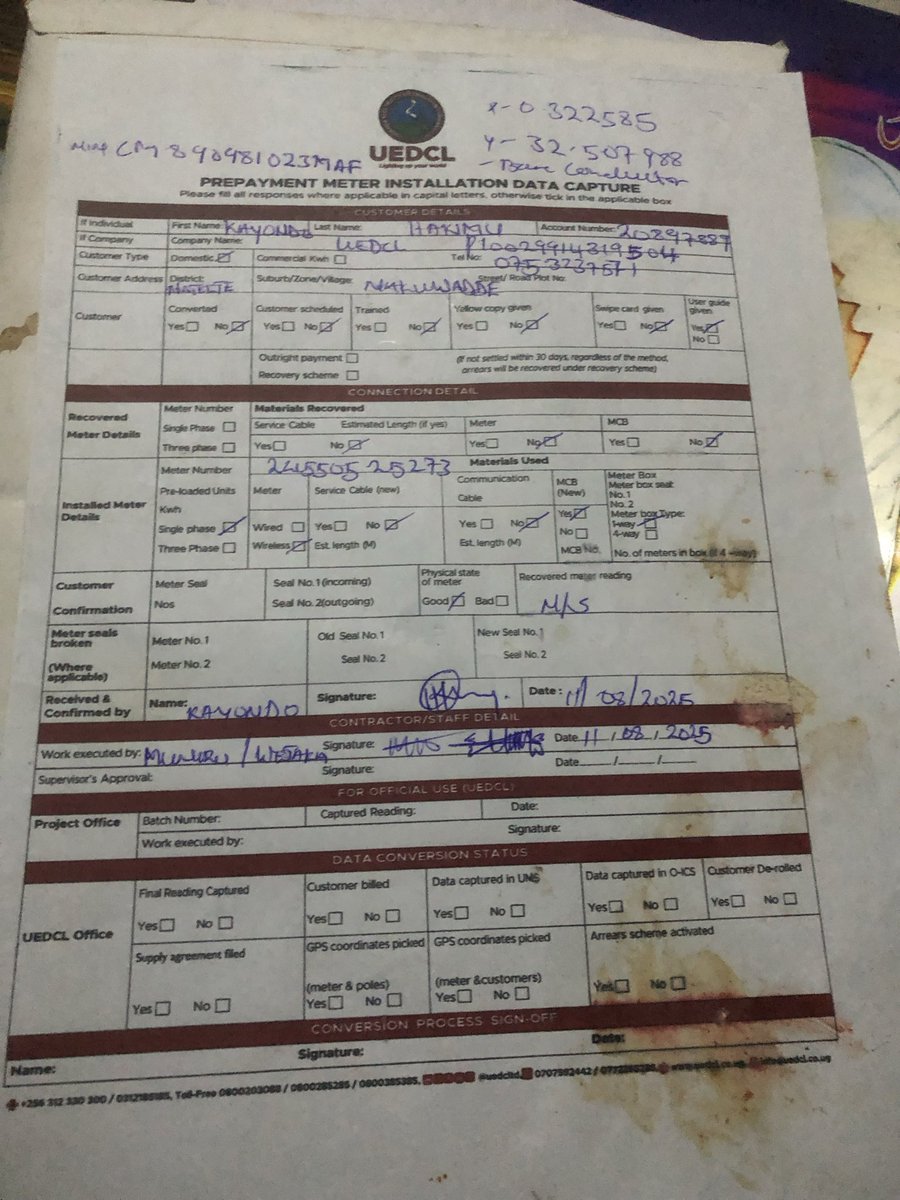 X- 0.322585
NIRA CM890981023MAF
UEDCL
Y- 32.507988
Lighting up your world
- Bare Conductor
PREPAYMENT METER INSTALLATION DATA CAPTURE
Please fill all responses where applicable in capital letters, otherwise tick in the applicable box
CUSTOMER DETAILS
If Individual First Name: KAYONDO Last Name: HAKIMU Account Number: 20897887
If Company Company Name: UEDCL P1002991431950H
Customer Type Domestic Commercial Kwh Tel No: 0753237571
Customer Address District: Suburb/Zone/Village: NAKUWADDE Street/ Road Plot No:
Customer Converted Customer scheduled Trained Yellow copy given Swipe card given User guide given
Yes No Yes No Yes No Yes No Yes No Yes
No
Outright payment (If not settled within 30 days, regardless of the method,
Recovery scheme arrears will be recovered under recovery scheme)
CONNECTION DETAIL
Recovered Meter Details Meter Number Materials Recovered
Single Phase Service Cable Estimated Length (if yes) Meter MCB
Three phase Yes No Yes No Yes No
Installed Meter Details Meter Number 24550525273 Materials Used
Pre-loaded Units Meter Service Cable (new) Communication Cable MCB (New) Meter Box
Meter box seal
No.1
Kwh No.2
Single phase Wired Yes No Yes No Yes Meter box Type:
1-way
No 4-way
Three Phase Wireless Est. length (M) Est. length (M) MCB No. No. of meters in box (if 4-way)
Customer Confirmation Meter Seal Seal No. 1 (incoming) Physical state of meter Recovered meter reading
Nos Seal No. 2(outgoing) Good Bad N/S
Meter seals broken Meter No. 1 Old Seal No. 1 New Seal No. 1
(Where applicable) Meter No. 2 Seal No. 2 Seal No. 2
Received & Confirmed by Name: KAYONDO Signature: Date: 11/08/2025
CONTRACTOR/STAFF DETAIL
Work executed by: Signature: Date 11/08/2025
Supervisor's Approval: Signature: Date / /
FOR OFFICIAL USE (UEDCL)
Project Office Batch Number: Captured Reading: Date:
Work executed by: Signature:
DATA CONVERSION STATUS
UEDCL Office Final Reading Captured Customer billed Data captured in UMS Data captured in O-ICS Customer De-rolled
Yes No Yes No Yes No Yes No Yes No
Supply agreement filed GPS coordinates picked GPS coordinates picked Arrears scheme activated
(meter & poles) (meter &customers)
Yes No Yes No Yes No Yes No
CONVERSION PROCESS SIGN-OFF
Name: Signature: Date:
+256 312 330 300 / 0312185185, Toll-Free 0800203088 / 0800285285 / 0800385385, @uedclltd, www.uedcl.co.ug, info@uedcl.co.ug